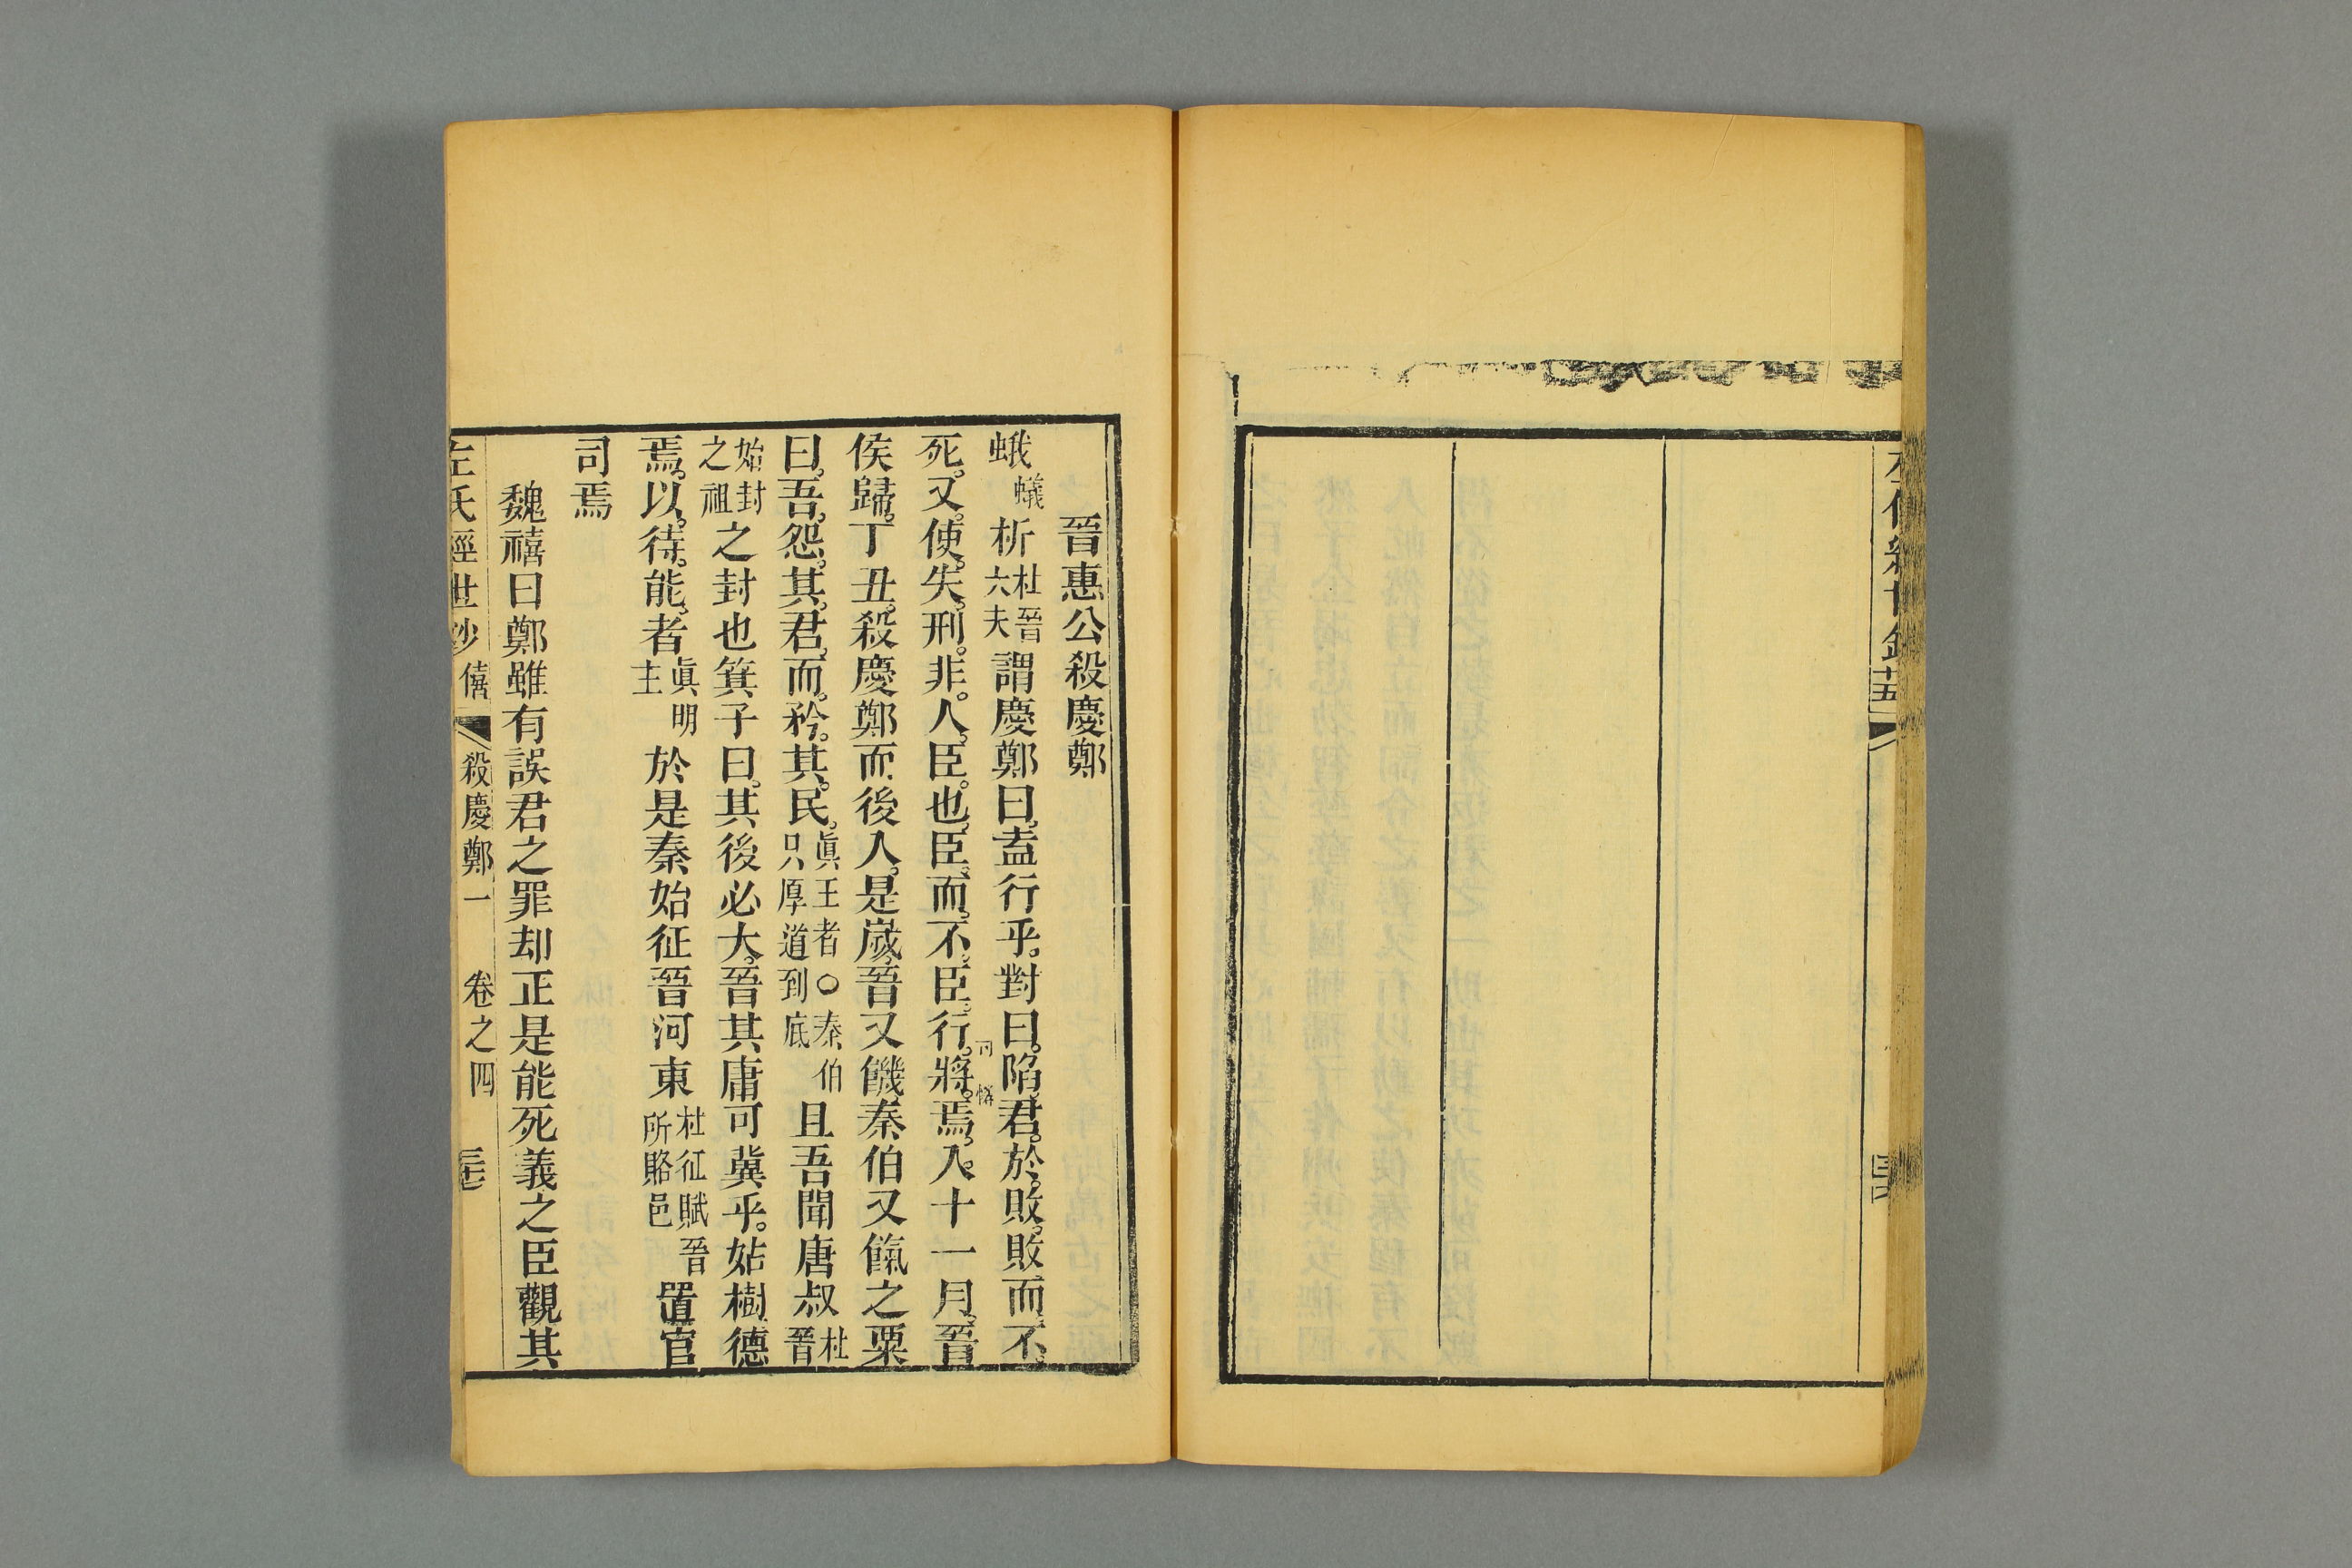 十五
晉惠公殺慶鄭
蛾蟻析杜晉大夫謂慶鄭曰盍行乎對曰陷君於敗敗而不
死又使失刑非人臣也臣而不臣行將焉入十一月晉
侯歸丁丑殺慶鄭而後入是歲晉又饑秦伯又餼之粟
曰吾怨其君而矜其民眞王者〇秦伯只厚道到底且吾聞唐叔杜晉
始封之祖之封也箕子曰其後必大晉其庸可冀乎姑樹德
焉以待能者眞明主於是秦始征晉河東杜征賦晉所賂邑置官
司焉
魏禧曰鄭雖有誤君之罪却正是能死義之臣觀其
左氏經世鈔 僖 殺慶鄭一 卷之四